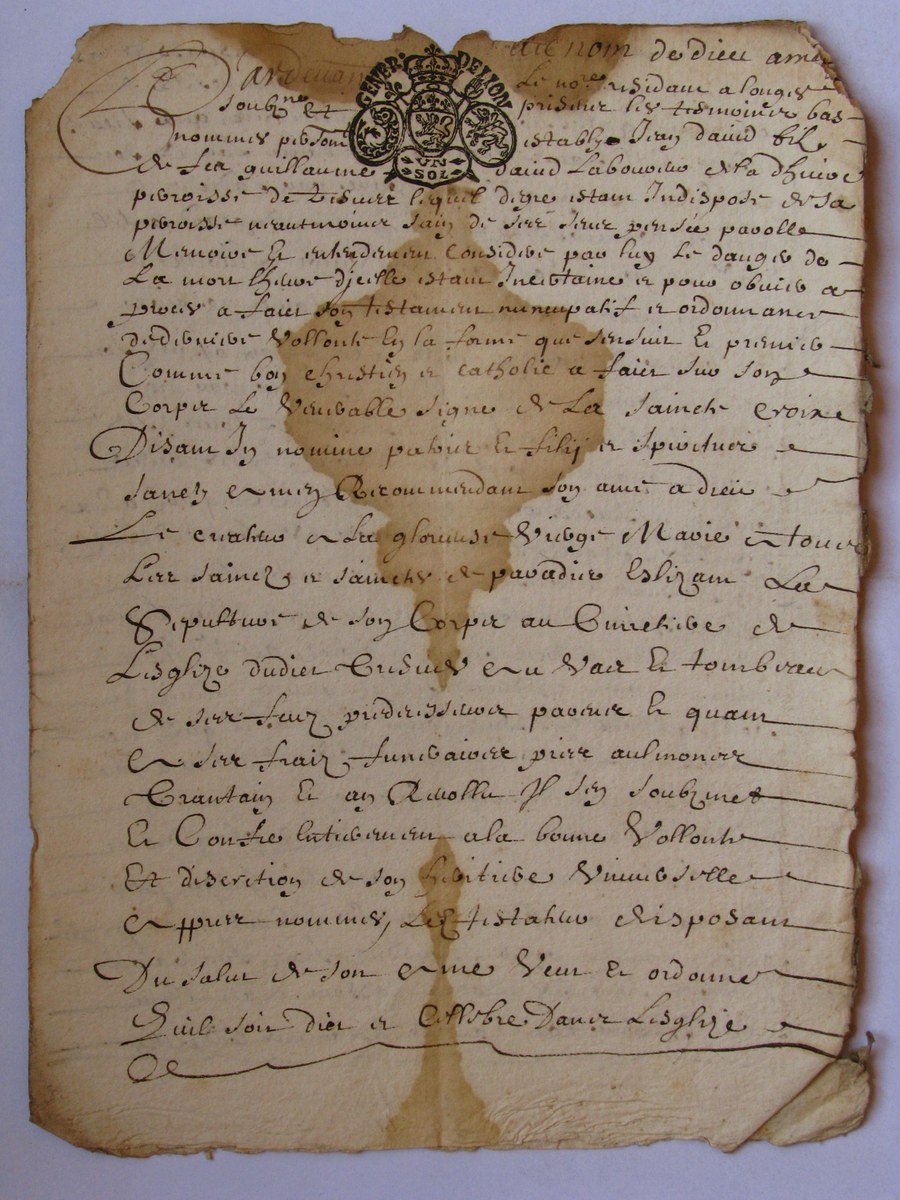 Pardevant au nom de dieu amen
Le no.re residant a longes
soubz.ne et presence les tesmoings bas
nommes personne establye Jean david fils
de feu guillaume david Laboureur de la
parroisse de lequel d. estant Indispose de sa
personne neantmoings sain de ses sens pensée parolle
Memoire et entendement considere par luy Le danger de
La mort Lheure dicelle estant Incertaine et pour obvier a
proces a faict son testament nuncupatif et ordonnance
de derniere Vollonte En la forme que sensuit Et premier
Comme bon chrestien et catholic a faict sur son
Corps Le Venerable signe de La saincte croix
Disant In nomine patris Et filij et spiritus
sancty amen Recommandant son ame a dieu
Le createur a La glorieuse Vierge Marie a tous
Les saincz et sainctes de paradis Eslizant La
Sepulture de son Corps au Cimetiere de
Lesglize dudict et au Vas et tombeau
de ses feuz predecesseurs parens Et quant
a ses fraiz funeraires pies aulmones
Trantain et an Revollu Il sen soubzmet
Et Confie Entierement a la bonne Vollonte
Et discretion de son heritiere Universelle
appres nommes, Led testateur disposant
Du salut de son ame Veut Et ordonne
Quil soit dict et Cellebre Dans Lesglize
De
GENER DE LION
VN
SOL